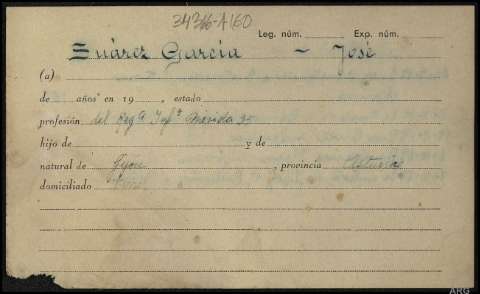 34316-A160
Leg. núm. Exp. núm.
Suárez García - José
(a)
de años en 19 , estado
profesión del Regto Infa Mérida 35
hijo de y de
natural de Gijón , provincia Asturias
domiciliado
ARG